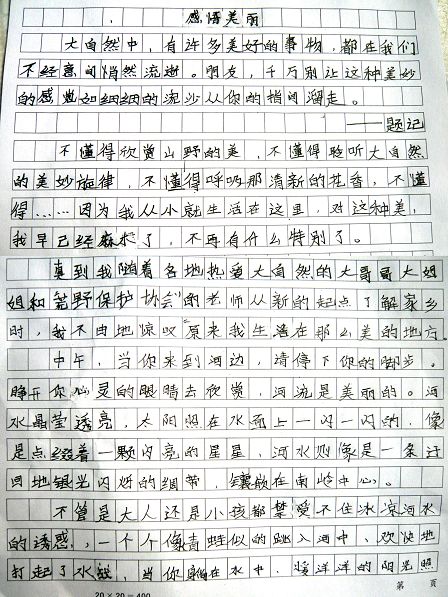 感悟美丽
大自然中，有许多美好的事物，都在我们
不经意间悄然流逝。朋友，千万别让这种美妙
的感觉如细细的流沙从你的指间溜走。
——题记
不懂得欣赏山野的美，不懂得聆听大自然
的美妙旋律，不懂得呼吸那清新的花香，不懂
得……因为我从小就生活在这里，对这种美，
我早已经麻木了，不再有什么特别了。
直到我随着各地热爱大自然的大哥哥大姐
姐和荒野保护协会的老师从新的起点了解家乡
时，我不由地惊叹“原来我生活在那么美的地方。
中午，当你来到河边，请停下你的脚步。
睁开你心灵的眼睛去欣赏，河流是美丽的。河
水晶莹透亮，太阳照在水面上一闪一闪的，像
是点缀着一颗闪亮的星星，河水则像是一条迂
回地银光闪烁的绸带，镶嵌在南岭中心。
不管是大人还是小孩都禁受不住冰凉河水
的诱惑，一个个像青蛙似的跳入河中，欢快地
打起了水战，当你躺在水中，暖洋洋的阳光照
第 页
20×20=400